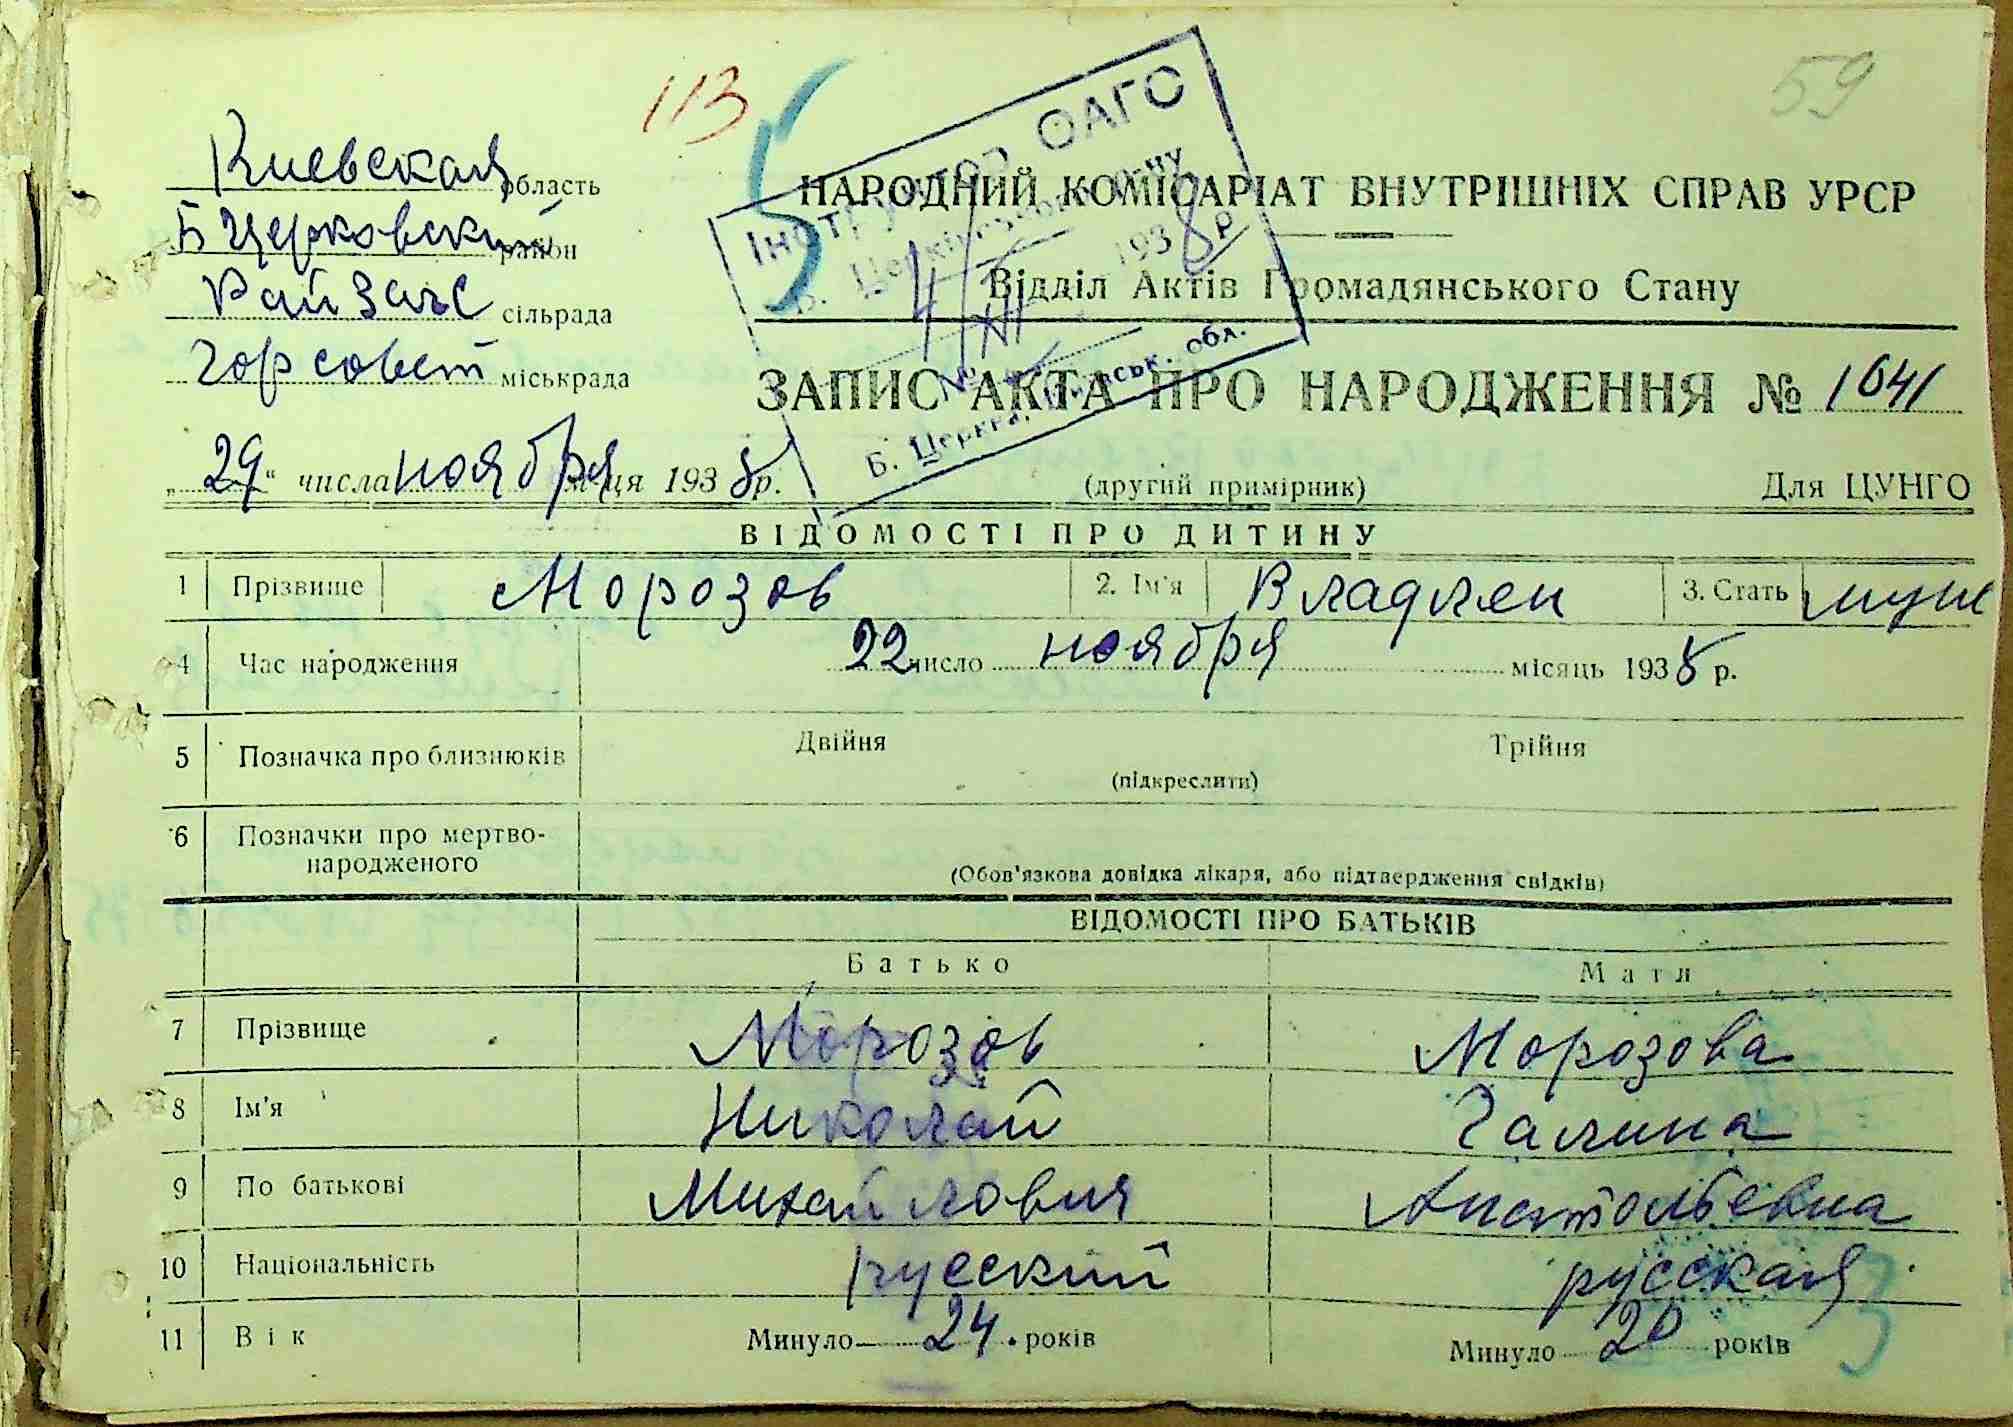 113
5
59
Киевская область
Б Церковский район
Рай Загс сільрада
Горсовет міськрада
Інструктор ОАГС
Б. Церківського
4/XII 1938 р.
№
Б. Церква, Київськ. обл.
НАРОДНИЙ КОМІСАРІАТ ВНУТРІШНІХ СПРАВ УРСР
Відділ Актів Громадянського Стану
ЗАПИС АКТА ПРО НАРОДЖЕННЯ № 1641
„29“ числа ноября м-ця 1938 р.
(другий примірник)
Для ЦУНГО
ВІДОМОСТІ ПРО ДИТИНУ
1 Прізвище Морозов 2. Ім'я Владлен 3. Стать муж
4 Час народження 22 число ноября місяць 1938 р.
5 Позначка про близнюків Двійня Трійня
(підкреслити)
6 Позначки про мертво-
народженого
(Обов'язкова довідка лікаря, або підтвердження свідків)
ВІДОМОСТІ ПРО БАТЬКІВ
Батько Мати
7 Прізвище Морозов Морозова
8 Ім'я Николай Галина
9 По батькові Михайлович Анатольевна
10 Національність русский русская
11 Вік Минуло 24 років Минуло 20 років
3